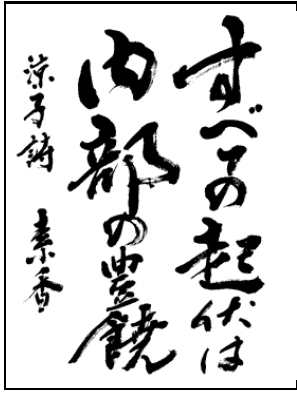 すべての起伏は
内部の豊饒
涼子詩 素香